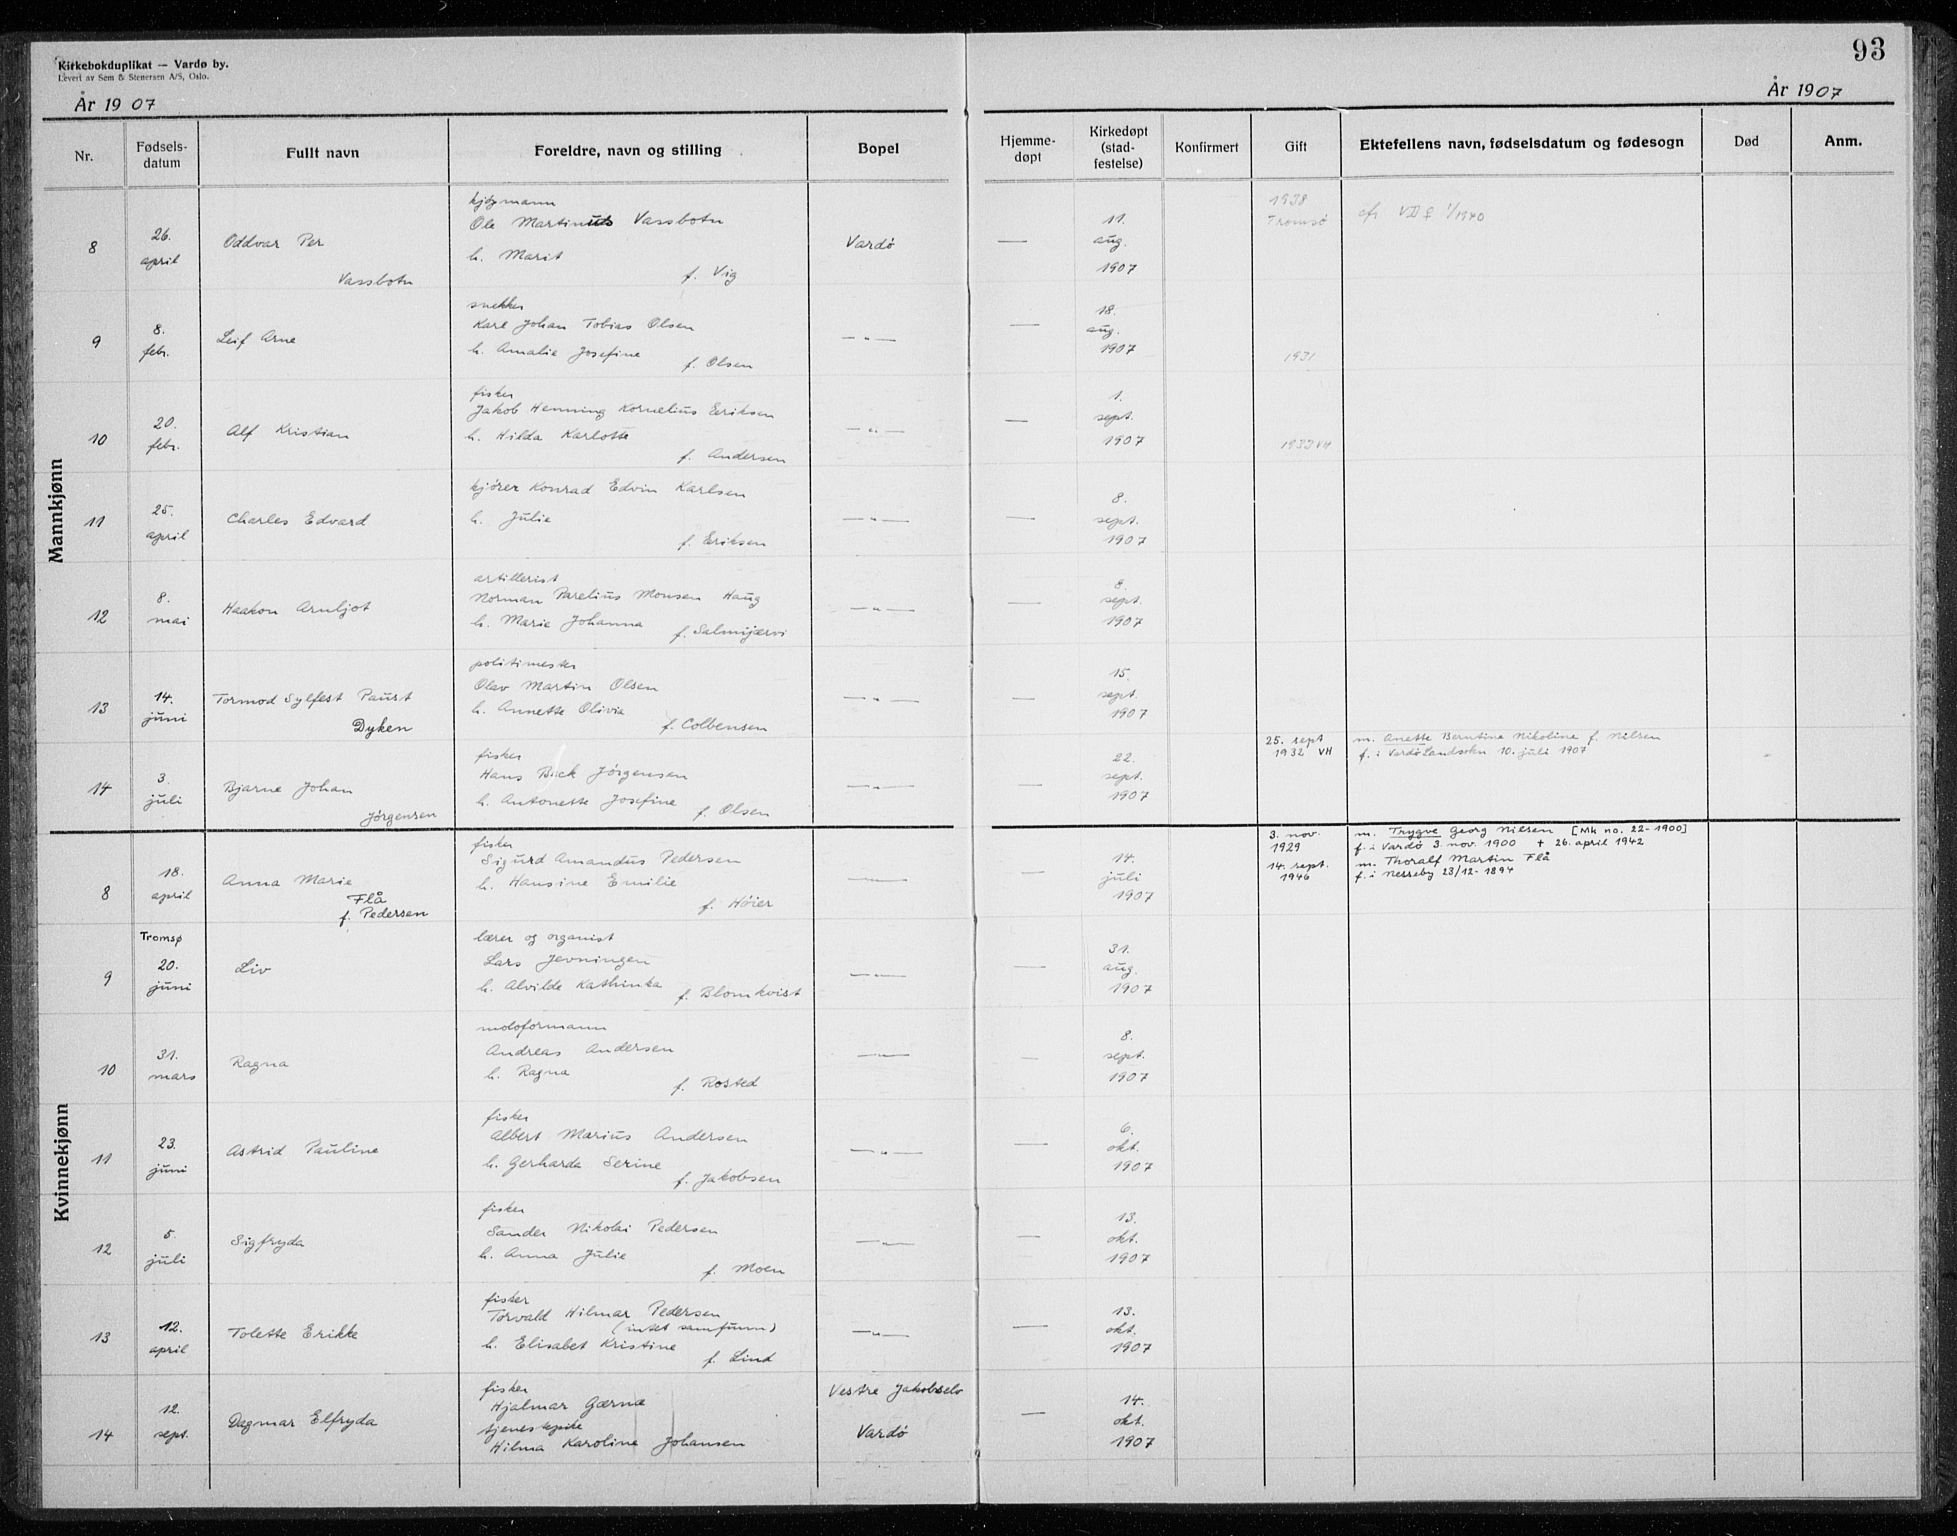 Kirkebokduplikat — Vardø by.
Levert av Sem & Stenersen A/S, Oslo.
93
År 1907
År 1907
Nr.
Fødsels-
datum
Fullt navn
Foreldre, navn og stilling
Bopel
Hjemme-
døpt
Kirkedøpt
(stad-
festelse)
Konfirmert
Gift
Ektefellens navn, fødselsdatum og fødesogn
Død
Anm.
Mannkjønn
8
26.
april
Oddvar Per
Vassbotn
kjøpmann
Ole Martinus Vassbotn
h. Marit
f. Vig
Vardö
—
11.
aug.
1907
1938
Tromsö
cfr VII 1/1940
9
8.
febr.
Leif Arne
snekker
Karl Johan Tobias Olsen
h. Amalie Josefine
f. Olsen
— " —
—
18.
aug.
1907
1931
10
20.
febr.
Alf Kristian
fisker
Jakob Henning Kornelius Eriksen
h. Hilda Karlotte
f. Andersen
— " —
—
1.
sept.
1907
1933 VH
11
25.
april
Charles Edvard
kjører Konrad Edvin Karlsen
h. Julie
f. Eriksen
— " —
—
8.
sept.
1907
12
8.
mai
Haakon Arnljot
artillerist
Norman Parelius Monsen Haug
h. Marie Johanna
f. Salmijærvi
— " —
—
8.
sept.
1907
13
14.
juni
Tormod Sylfest Paust
Dyken
politimester
Olav Martin Olsen
h. Annette Olivia
f. Colbensen
— " —
—
15.
sept.
1907
14
3.
juli
Bjarne Johan
Jörgensen
fisker
Hans Beck Jörgensen
h. Antonette Josefine
f. Olsen
— " —
—
22.
sept.
1907
25. sept
1932 VH
m. Anette Berntine Nikoline f. Nilsen
f. i Vardö Landsokn 10. juli 1907
Kvinnekjønn
8
18.
april
Anna Marie
Flå
f. Pedersen
fisker
Sigurd Amandus Pedersen
h. Hansine Emilie
f. Höier
— " —
14.
juli
1907
3. nov.
1929
14. sept.
1946
m. Trygve Georg Nilsen [Mk no. 22-1900]
f. i Vardö 3. nov. 1900 + 26. april 1942
m. Thoralf Martin Flå
f. i Nesseby 23/12-1894
9
Tromsø
20.
juni
Liv
lærer og organist
Lars Jevningen
h. Alvilde Kathinka
f. Blomkvist
— " —
—
31.
aug.
1907
10
31.
mars
Ragna
moloformann
Andreas Andersen
h. Ragna
f. Rosted
— " —
—
8.
sept.
1907
11
23.
juni
Astrid Pauline
fisker
Albert Marius Andersen
h. Gerharda Serine
f. Jakobsen
— " —
—
6.
okt.
1907
12
5.
juli
Sigfryda
fisker
Sander Nikolai Pedersen
h. Anna Julie
f. Moen
— " —
—
13.
okt.
1907
13
12.
april
Tolette Erikke
fisker
Torvald Hilmar Pedersen
(intet samfunn)
h. Elisabet Kristine
f. Lind
— " —
—
13.
okt.
1907
14
12.
sept.
Dagmar Elfryda
fisker
Hjalmar Gærnæ
tjenestepike
Hilma Karoline Johansen
Vestre Jakobselv
Vardö
—
14.
okt.
1907